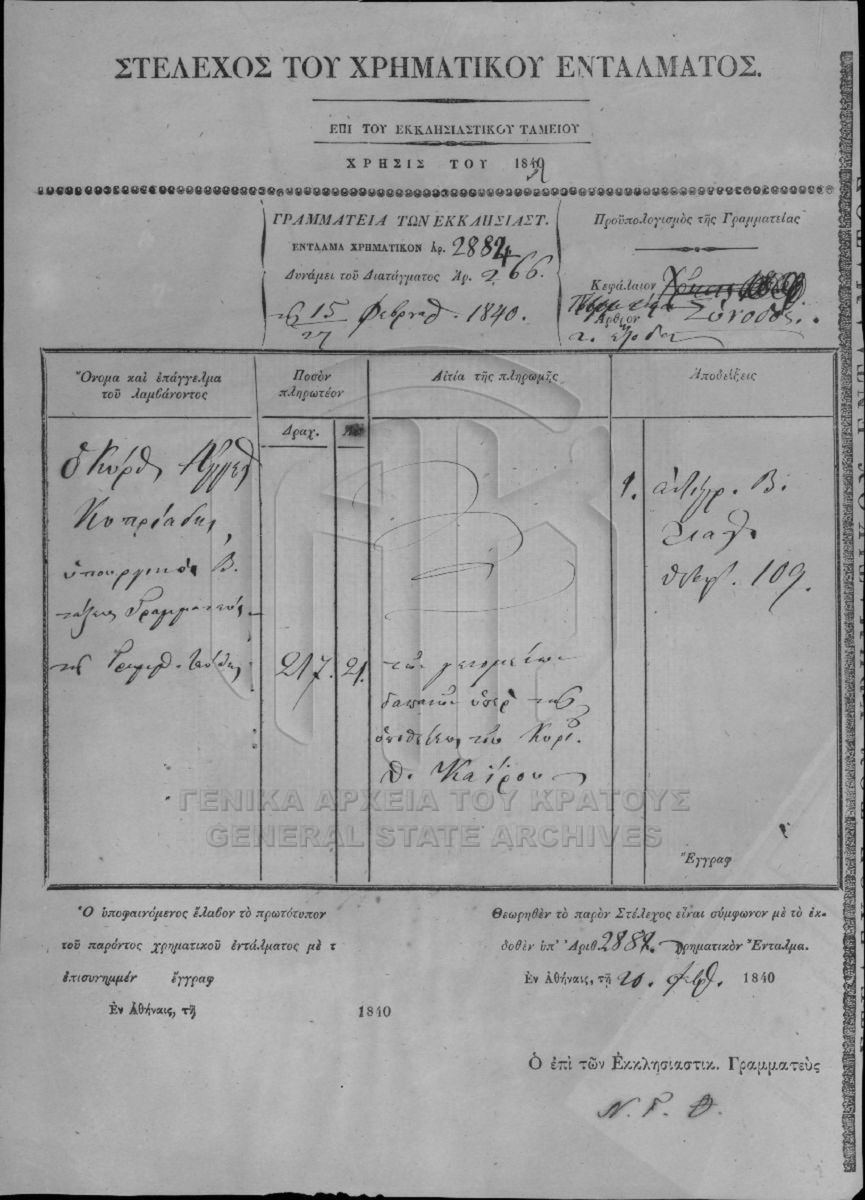 ΣΤΕΛΕΧΟΣ ΤΟΥ ΧΡΗΜΑΤΙΚΟΥ ΕΝΤΑΛΜΑΤΟΣ.
ΕΠΙ ΤΟΥ ΕΚΚΛΗΣΙΑΣΤΙΚΟΥ ΤΑΜΕΙΟΥ
ΧΡΗΣΙΣ ΤΟΥ 1840
ΓΡΑΜΜΑΤΕΙΑ ΤΩΝ ΕΚΚΛΗΣΙΑΣΤ.
ΕΝΤΑΛΜΑ ΧΡΗΜΑΤΙΚΟΝ Ἀρ. 2884
Δυνάμει τοῦ Διατάγματος Ἀρ. 266.
15/27 1840.
Προϋπολογισμὸς τῆς Γραμματείας
Κεφάλαιον
Ἄρθρον Σύνοδος.
Ὄνομα καὶ ἐπάγγελμα
τοῦ λαμβάνοντος
Ποσὸν
πληρωτέον
Δραχ.
Αἰτία τῆς πληρωμῆς
Ἀποδείξεις
ὁ Κύριος
Κυπριάδης
ὑπουργικὸς Β.
τάξεως Γραμματεὺς
217. 21.
τῶν γενομένων
δαπανῶν ὑπὲρ τῆς
ὑποθέσεως τοῦ Κυρί.
Θ. Καΐρου
1. ἀντίγρ. Β.
109.
Ἔγγραφ
ΓΕΝΙΚΑ ΑΡΧΕΙΑ ΤΟΥ ΚΡΑΤΟΥΣ
GENERAL STATE ARCHIVES
Ὁ ὑποφαινόμενος ἔλαβον τὸ πρωτότυπον
τοῦ παρόντος χρηματικοῦ ἐντάλματος μὲ τ
ἐπισυνημμέν ἔγγραφ
Ἐν Ἀθήναις, τῇ 1840
Θεωρηθὲν τὸ παρὸν Στέλεχος εἶναι σύμφωνον μὲ τὸ ἐκ-
δοθὲν ὑπ' Ἀριθ. 2884 χρηματικὸν Ἔνταλμα.
Ἐν Ἀθήναις, τῇ 20. Φεβρ. 1840
Ὁ ἐπὶ τῶν Ἐκκλησιαστικ. Γραμματεὺς
Ν. Γ. Θ.